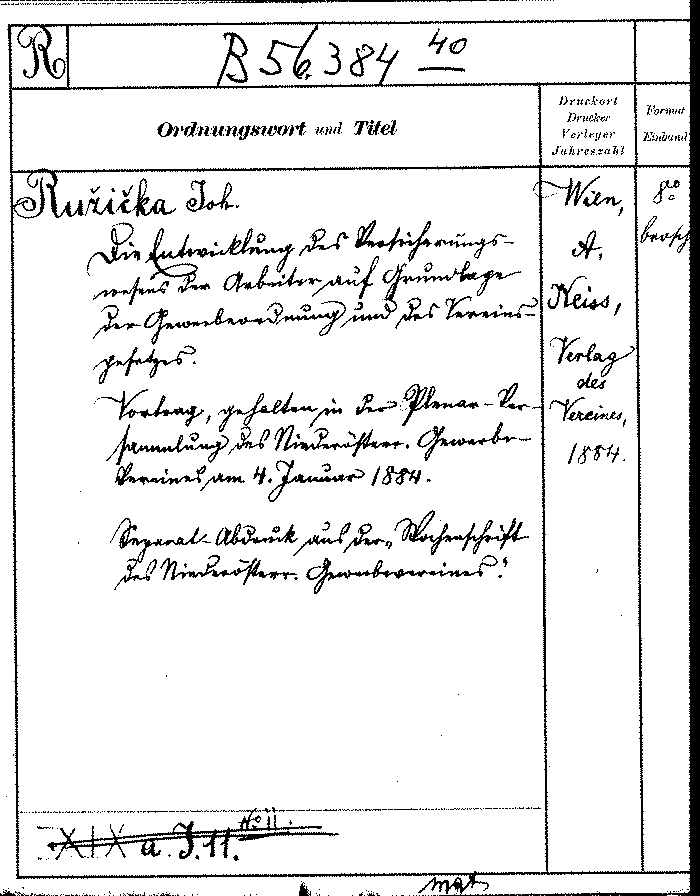 R
B 56.384 40
Ordnungswort und Titel
Druckort
Drucker
Verleger
Jahreszahl
Format
Einband
Ružička Joh.
Die Entwicklung des Versicherungs-
wesens der Arbeiter auf Grundlage
der Gewerbeordnung und des Vereins-
gesetzes.
Vortrag, gehalten in der Plenar-Ver-
sammlung des Niederösterr. Gewerbe-
Vereines am 4. Januar 1884.
Separat-Abdruck aus der „Wochenschrift
des Niederösterr. Gewerbevereines".
Wien,
A.
Keiss,
Verlag
des
Vereines,
1884.
8o
brosch
XIX a. J. 11. No 11.
mat